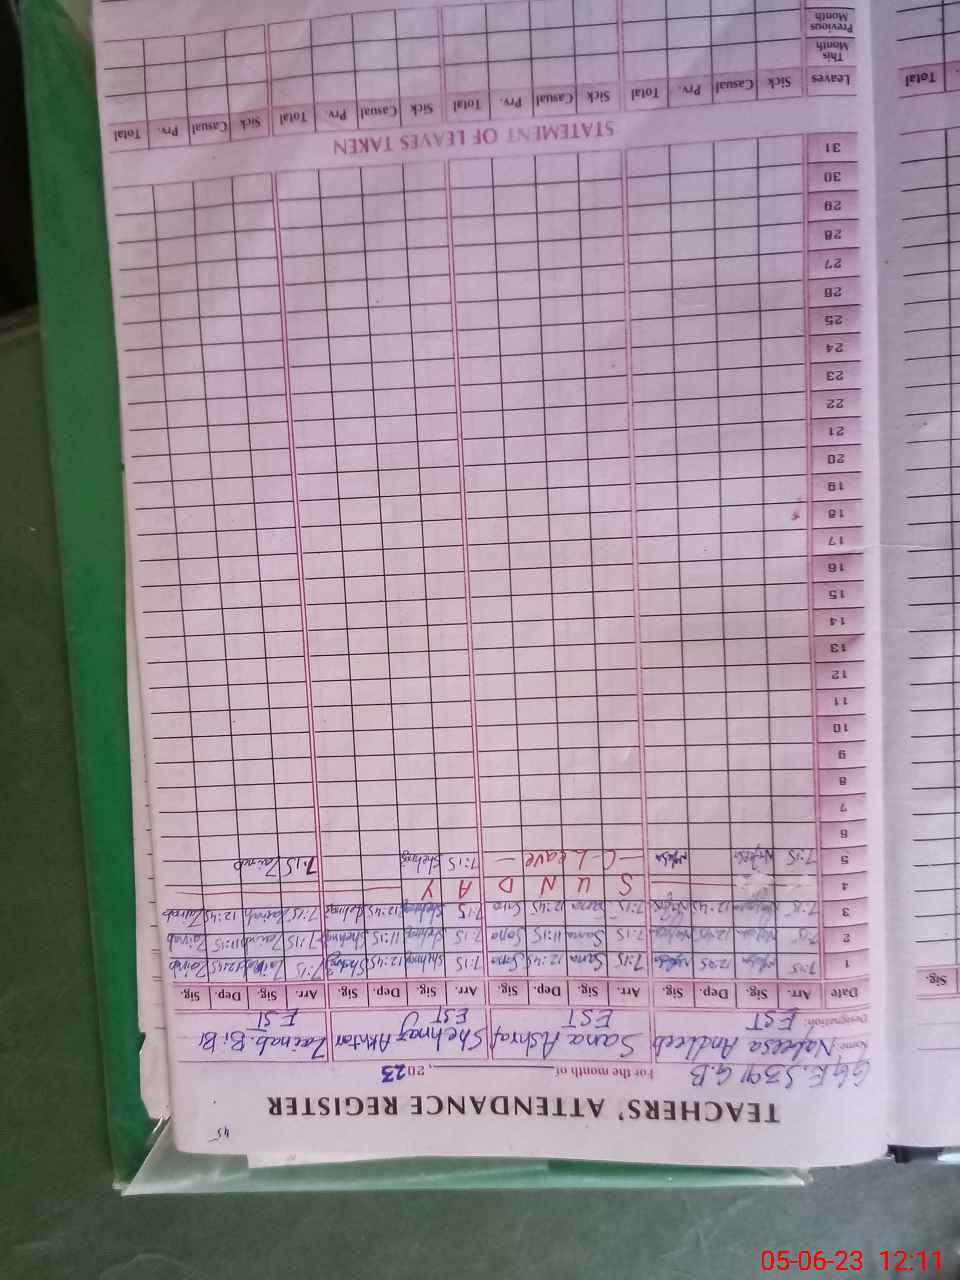 45
TEACHERS' ATTENDANCE REGISTER
G.G.E.S 391 G.B For the month of , 2023
Name: Nafeesa Andleeb Sana Ashraf Shehnaz Akhtar Zainab. Bi Bi
Designation: EST EST EST EST
Date Arr. Sig. Dep. Sig. Arr. Sig. Dep. Sig. Arr. Sig. Dep. Sig. Arr. Sig. Dep. Sig.
1 7:15 Nafeesa 12:45 Nafeesa 7:15 Sana 12:45 Sana 7:15 Shehnaz 12:45 Shehnaz 7:15 Zainab 12:45 Zainab
2 7:15 Nafeesa 12:45 Nafeesa 7:15 Sana 11:15 Sana 7:15 Shehnaz 11:15 Shehnaz 7:15 Zainab 11:15 Zainab
3 7:15 Nafeesa 12:45 Nafeesa 7:15 Sana 12:45 Sana 7:15 Shehnaz 12:45 Shehnaz 7:15 Zainab 12:45 Zainab
4 S U N D A Y
5 7:15 Nafeesa Nafeesa — C-Leave — 7:15 Shehnaz 7:15 Zainab
6
7
8
9
10
11
12
13
14
15
16
17
18
19
20
21
22
23
24
25
26
27
28
29
30
31
STATEMENT OF LEAVES TAKEN
Leaves Sick Casual Prv. Total Sick Casual Prv. Total Sick Casual Prv. Total Sick Casual Prv. Total
This Month
Previous Month
Sig.
Total
05-06-23 12:11